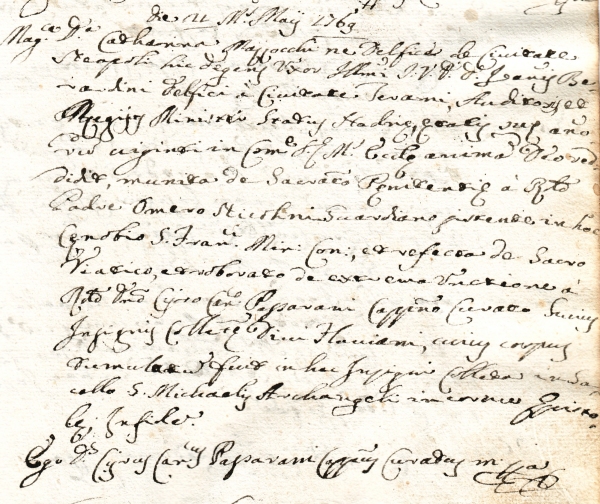 die 21 Ms. Maij 1769
Mag.ca D.a Catharina Mazzocchi ne Delfico de Civitate
Neapoli hic degens Uxor Ill.mi J. V. D. D. Joannis Be-
rardini Delfici a Civitate Terami, Auditoris et
Regij Ministri Status Hadrie, etatis sue anno
viginti in com. S. E. M. Eccle animam Deo red-
didit, munita de Sacramento Penitentie a R.do
Padre Omero Guardiano in hoc
Cenobio S. Fran. Min. Con., et refecta de Sacro
Viatico, et roborata de extrema Unctione a
R.do D.no Cyro Can.co Passarani Curato hujus
Insignis Colleg. Divi Flaviani, cujus corpus
tumulatum fuit in hac Insigni Collegiata in Sa-
cello S. Michaelis Archangeli in cornu Episto-
le; In fide
Ego D. Cyrus Can.cus Passarani Curatus m.